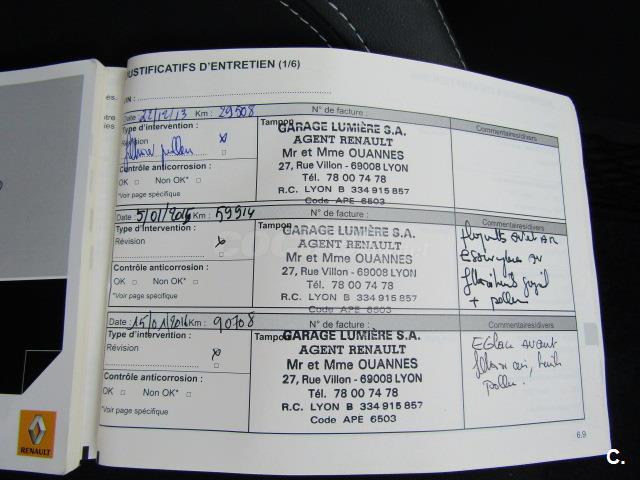 JUSTIFICATIFS D'ENTRETIEN (1/6)
Date : 22/12/13 Km : 29508
N° de facture :
Type d'intervention :
Tampon
Commentaires/divers
Révision x
filtre pollen
GARAGE LUMIÈRE S.A.
AGENT RENAULT
Mr et Mme OUANNES
27, Rue Villon - 69008 LYON
Tél. 78 00 74 78
R.C. LYON B 334 915 857
Code APE 6503
Contrôle anticorrosion :
OK □ Non OK* □
*Voir page spécifique
Date : 5/01/2015 Km : 59914
N° de facture :
Type d'intervention :
Tampon
Commentaires/divers
Révision x
GARAGE LUMIÈRE S.A.
AGENT RENAULT
Mr et Mme OUANNES
27, Rue Villon - 69008 LYON
Tél. 78 00 74 78
R.C. LYON B 334 915 857
Code APE 6503
Contrôle anticorrosion :
OK □ Non OK* □
*Voir page spécifique
+ pollen
Date : 15/01/2016 Km : 90708
N° de facture :
Type d'intervention :
Tampon
Commentaires/divers
Révision x
GARAGE LUMIÈRE S.A.
AGENT RENAULT
Mr et Mme OUANNES
27, Rue Villon - 69008 LYON
Tél. 78 00 74 78
R.C. LYON B 334 915 857
Code APE 6503
Contrôle anticorrosion :
OK □ Non OK* □
*Voir page spécifique
avant
filtre air, huile
pollen.
6.9
RENAULT
C.